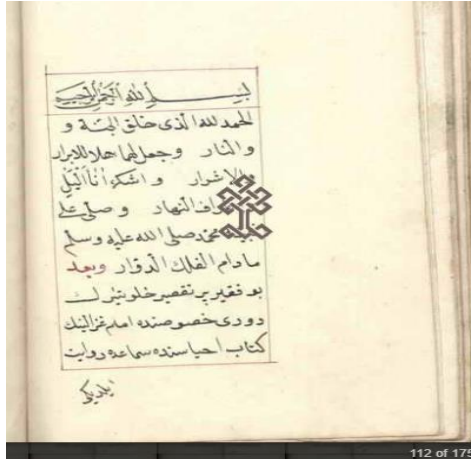 بسم الله الرحمن الرحيم
الحمد لله الذى خالق الجنة و
و النار و جعل لهما اهلا للابرار
و الاشرار و اشكره اناء الليل
اطراف النهار و صلى على
محمد صلى الله عليه وسلم
ما دام الفلك الدوار وبعد
بو فقير پر تقصير خلوتيلرك
دورى خصوصنده امام غزالينك
كتاب احياسنده سماعده روايت
ايلديكى
112 of 175